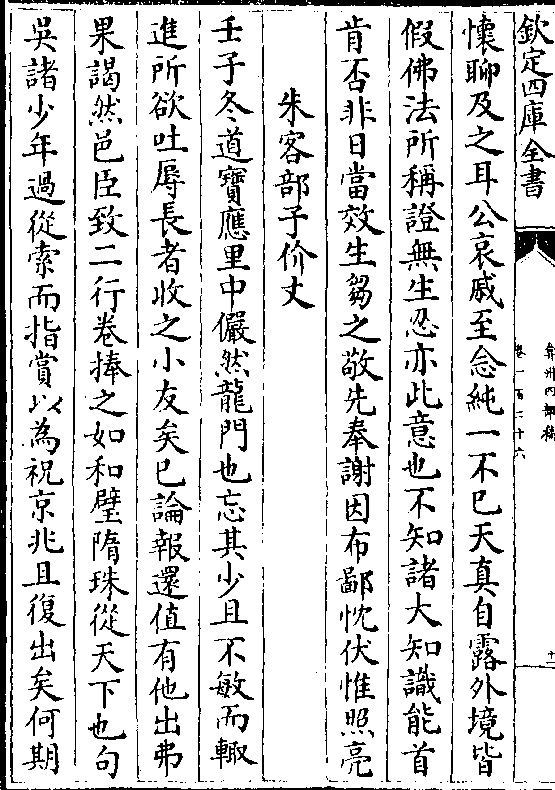 欽定四庫全書
弇州四部稿
卷一百二十六
十一
懷聊及之耳公哀戚至念純一不已天真自露外境皆
假佛法所稱證無生忍亦此意也不知諸大知識能首
肯否非日當效生芻之敬先奉謝因布鄙忱伏惟照亮
朱客部子价丈
壬子冬道寶應里中儼然龍門也忘其少且不敏而輙
進所欲吐辱長者收之小友矣已論報還值有他出弗
果謁然邑臣致二行卷捧之如和璧隋珠從天下也句
吳諸少年過從索而指賞以為祝京兆且復出矣何期